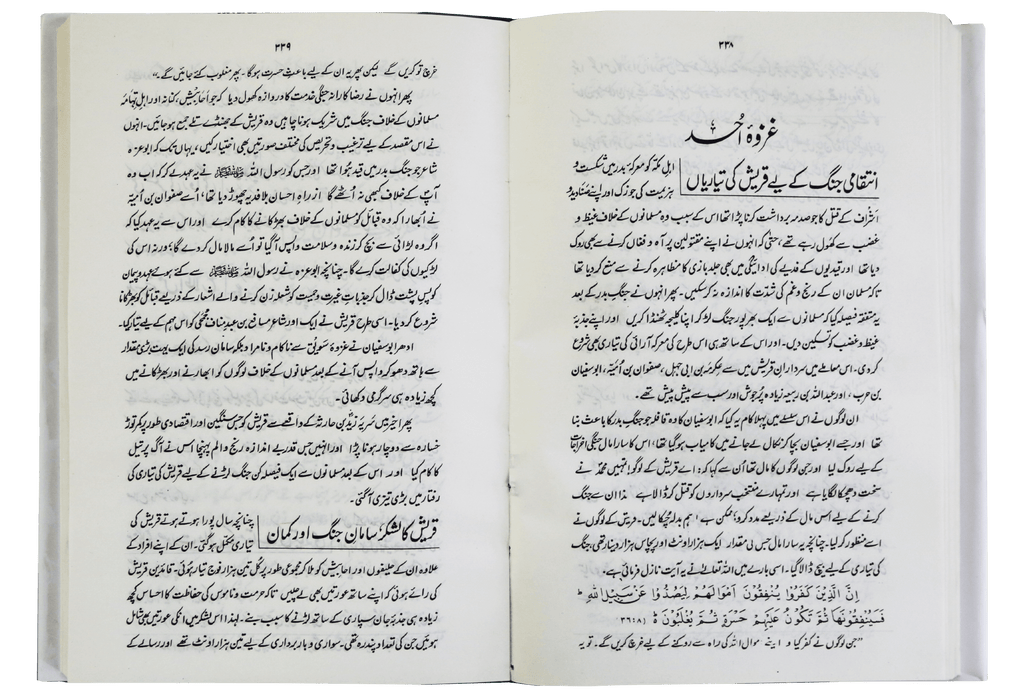 ۳۳۸
غزوۂ اُحد
انتقامی جنگ کے لیے قریش کی تیاریاں
اہلِ مکّہ کو معرکۂ بدر میں شکست و
ہزیمت کی جو زک اور اپنے صنادید و
اشراف کے قتل کا جو صدمہ برداشت کرنا پڑا تھا اس کے سبب وہ مسلمانوں کے خلاف غیظ و
غضب سے کھول رہے تھے، حتیٰ کہ انہوں نے اپنے مقتولین پر آہ و فغاں کرنے سے بھی روک
دیا تھا اور قیدیوں کے فدیے کی ادائیگی میں بھی جلد بازی کا مظاہرہ کرنے سے منع کر دیا تھا
تاکہ مسلمان ان کے رنج و غم کی شدّت کا اندازہ نہ کر سکیں۔ پھر انہوں نے جنگِ بدر کے بعد
یہ متفقہ فیصلہ کیا کہ مسلمانوں سے ایک بھرپور جنگ لڑ کر اپنا کلیجہ ٹھنڈا کریں اور اپنے جذبۂ
غیظ و غضب کو تسکین دیں۔ اور اس کے ساتھ ہی اس طرح کی معرکہ آرائی کی تیاری بھی شروع
کر دی۔ اس معاملے میں سردارانِ قریش میں سے عکرمہ بن ابی جہل، صفوان بن اُمیّہ، ابوسفیان
بن حرب، اور عبداللہ بن ربیعہ زیادہ پُرجوش اور سب سے پیش پیش تھے۔
ان لوگوں نے اس سلسلے میں پہلا کام یہ کیا کہ ابوسفیان کا وہ قافلہ جو جنگِ بدر کا باعث بنا
تھا اور جسے ابوسفیان بچا کر نکال لے جانے میں کامیاب ہو گیا تھا، اس کا سارا مال جنگی اخراجات
کے لیے روک لیا اور جن لوگوں کا مال تھا اُن سے کہا کہ: اے قریش کے لوگو! تمہیں محمّد نے
سخت دھچکا لگایا ہے اور تمہارے منتخب سرداروں کو قتل کر ڈالا ہے لہٰذا ان سے جنگ
کرنے کے لیے اس مال کے ذریعے مدد کرو؛ ممکن ہے ہم بدلہ چکا لیں۔ قریش کے لوگوں نے
اسے منظور کر لیا۔ چنانچہ یہ سارا مال جس کی مقدار ایک ہزار اونٹ اور پچاس ہزار دینار تھی، جنگ
کی تیاری کے لیے بیچ ڈالا گیا۔ اسی بارے میں اللہ تعالیٰ نے یہ آیت نازل فرمائی ہے۔
اِنَّ الَّذِیْنَ کَفَرُوْا یُنْفِقُوْنَ اَمْوَالَهُمْ لِیَصُدُّوْا عَنْ سَبِیْلِ اللهِ ط
فَسَیُنْفِقُوْنَهَا ثُمَّ تَكُوْنُ عَلَیْهِمْ حَسْرَةً ثُمَّ یُغْلَبُوْنَ ط (۳۶:۸)
"جن لوگوں نے کفر کیا و اپنے موال اللہ کی راہ سے روکنے کے لیے خرچ کریں گے۔ تو یہ
۳۳۹
خرچ تو کریں گے لیکن پھر یہ ان کے لیے باعثِ حسرت ہو گا۔ پھر مغلوب کئے جائیں گے۔"
پھر انہوں نے رضاکارانہ جنگی خدمت کا دروازہ کھول دیا کہ جو اَحابیش، کنانہ اور اہلِ تِہامہ
مسلمانوں کے خلاف جنگ میں شریک ہونا چاہیں وہ قریش کے جھنڈے تلے جمع ہو جائیں۔ انہوں
نے اس مقصد کے لیے ترغیب و تحریص کی مختلف صورتیں بھی اختیار کیں، یہاں تک کہ ابوعزہ
شاعر جو جنگِ بدر میں قید ہوا تھا اور جس کو رسول اللہ ﷺ نے یہ عہد لے کر کہ اب وہ
آپؐ کے خلاف کبھی نہ اُٹھے گا ازراہِ احسان بلا فدیہ چھوڑ دیا تھا، اُسے صفوان بن اُمیّہ
نے ابھارا کہ وہ قبائل کو مسلمانوں کے خلاف بھڑکانے کا کام کرے اور اس سے یہ عہد کیا کہ
اگر وہ لڑائی سے بچ کر زندہ و سلامت واپس آ گیا تو اُسے مالا مال کر دے گا؛ ورنہ اس کی
لڑکیوں کی کفالت کرے گا۔ چنانچہ ابوعزہ نے رسول اللہ ﷺ سے کئے ہوئے عہد و پیمان
کو پسِ پشت ڈال کر جذباتِ غیرت و حمیت کو شعلہ زن کرنے والے اشعار کے ذریعے قبائل کو بھڑکانا
شروع کر دیا۔ اسی طرح قریش نے ایک اور شاعر مسافع بن عبد مناف جمحی کو اس مہم کے لیے تیار کیا۔
ادھر ابوسفیان نے غزوۂ سَوِیق سے ناکام و نامراد بلکہ سامان رسد کی ایک بہت بڑی مقدار
سے ہاتھ دھو کر واپس آنے کے بعد مسلمانوں کے خلاف لوگوں کو ابھارنے اور بھڑکانے میں
کچھ زیادہ ہی سرگرمی دکھائی۔
پھر اخیر میں سَریّۂ زیدؓ بن حارثہ کے واقعے سے قریش کو جس سنگین اور اقتصادی طور پر کمر توڑ
خسارہ سے دوچار ہونا پڑا اور انہیں جس قدر بے اندازہ رنج و الم پہنچا اس نے آگ پر تیل
کا کام کیا اور اس کے بعد مسلمانوں سے ایک فیصلہ کن جنگ لڑنے کے لیے قریش کی تیاری کی
رفتار میں بڑی تیزی آ گئی۔
قریش کا لشکر، سامانِ جنگ اور کمان
چنانچہ سال پورا ہوتے ہوتے قریش کی
تیاری مکمل ہو گئی۔ ان کے اپنے افراد کے
علاوہ ان کے حلیفوں اور احابیش کو ملا کر مجموعی طور پر کُل تین ہزار فوج تیار ہوئی۔ قائدینِ قریش
کی رائے ہوئی کہ اپنے ساتھ عورتیں بھی لے چلیں تاکہ حرمت و ناموس کی حفاظت کا احساس کچھ
زیادہ ہی جذبۂ جان سپاری کے ساتھ لڑنے کا سبب بنے۔ لہٰذا اس لشکر میں انکی عورتیں بھی شامل
ہوئیں جن کی تعداد پندرہ تھی۔ سواری و باربرداری کے لیے تین ہزار اونٹ تھے اور رسالے کے